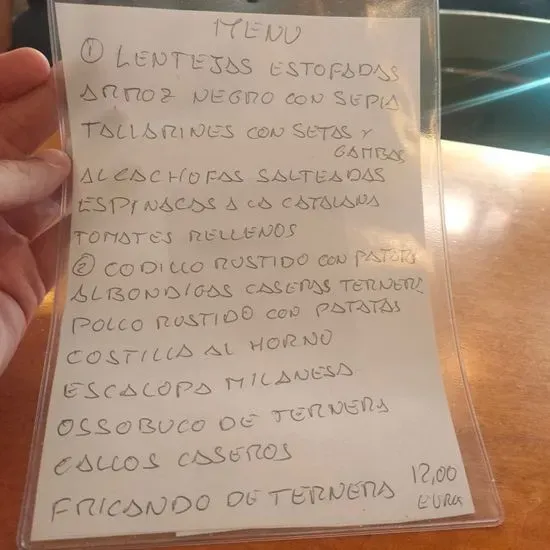 MENU
① LENTEJAS ESTOFADAS
ARROZ NEGRO CON SEPIA
TALLARINES CON SETAS Y
GAMBAS
ALCACHOFAS SALTEADAS
ESPINACAS A LA CATALANA
TOMATES RELLENOS
② CODILLO RUSTIDO CON PATATAS
ALBONDIGAS CASERAS TERNERA
POLLO RUSTIDO CON PATATAS
COSTILLA AL HORNO
ESCALOPA MILANESA
OSSOBUCO DE TERNERA
CALLOS CASEROS
FRICANDO DE TERNERA 12,00
EUROS